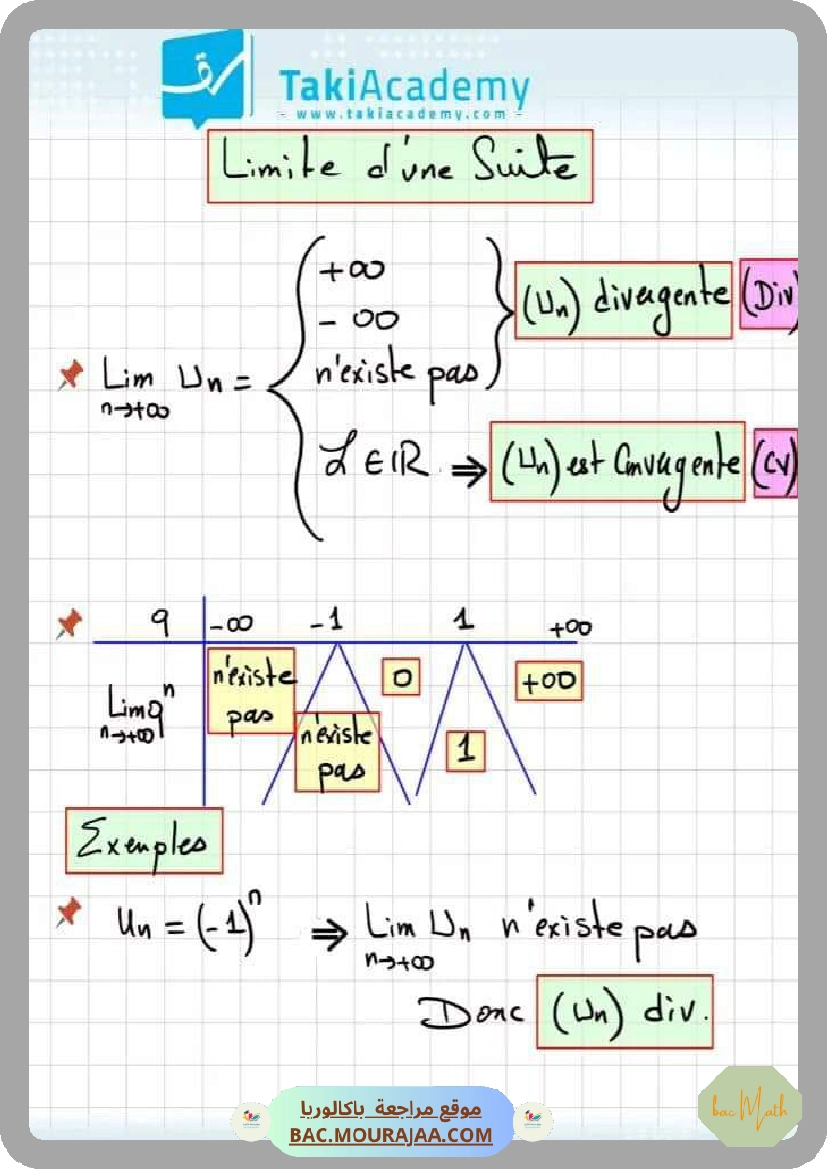 TakiAcademy
- www.takiacademy.com -
Limite d'une Suite
+∞
- ∞
n'existe pas
(Un) divergente (Div)
Lim Un =
n→+∞
L ∈ IR. ⇒ (Un) est Convergente (CV)
q -∞ -1 1 +∞
Lim qⁿ
n→+∞
n'existe
pas
n'existe
pas
0
1
+∞
Exemples
Un = (-1)ⁿ ⇒ Lim Un n'existe pas
n→+∞
Donc (Un) div.
موقع مراجعة باكالوريا
BAC.MOURAJAA.COM
bac Math